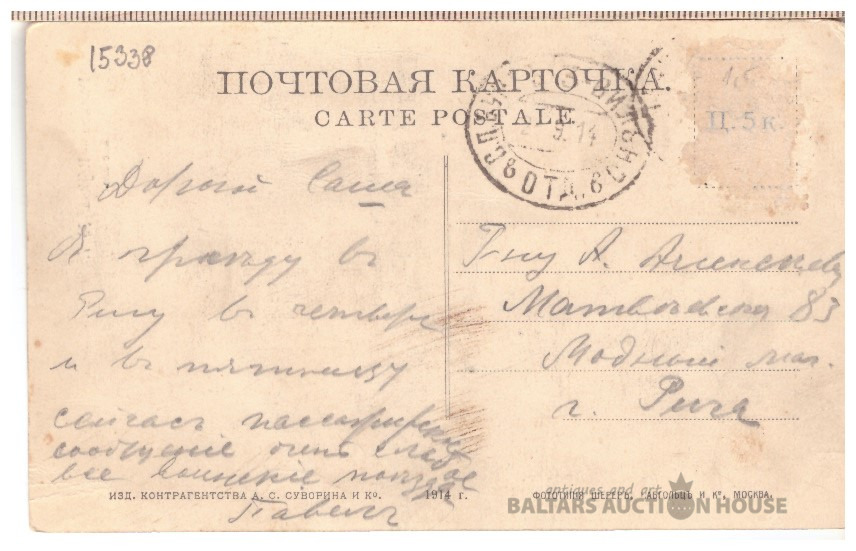 15338
ПОЧТОВАЯ КАРТОЧКА.
CARTE POSTALE.
ВИЛЬНО
9.14
ОТД.
Ц. 5 к.
Дорогой Саша
Я приеду въ
Ригу въ четвергъ
и въ пятницу
сейчасъ пассажирское
сообщеніе очень слабое
все воинскіе поезда
Павелъ
Г-ну А. Алексееву
Матвѣевская 83
Модный маг.
г. Рига
ИЗД. КОНТРАГЕНТСТВА А. С. СУВОРИНА И Ко. 1914 г.
ФОТОТИПІЯ ШЕРЕРЪ, НАБГОЛЬЦЪ И Ко, МОСКВА.
antiques and art
BALTARS AUCTION HOUSE